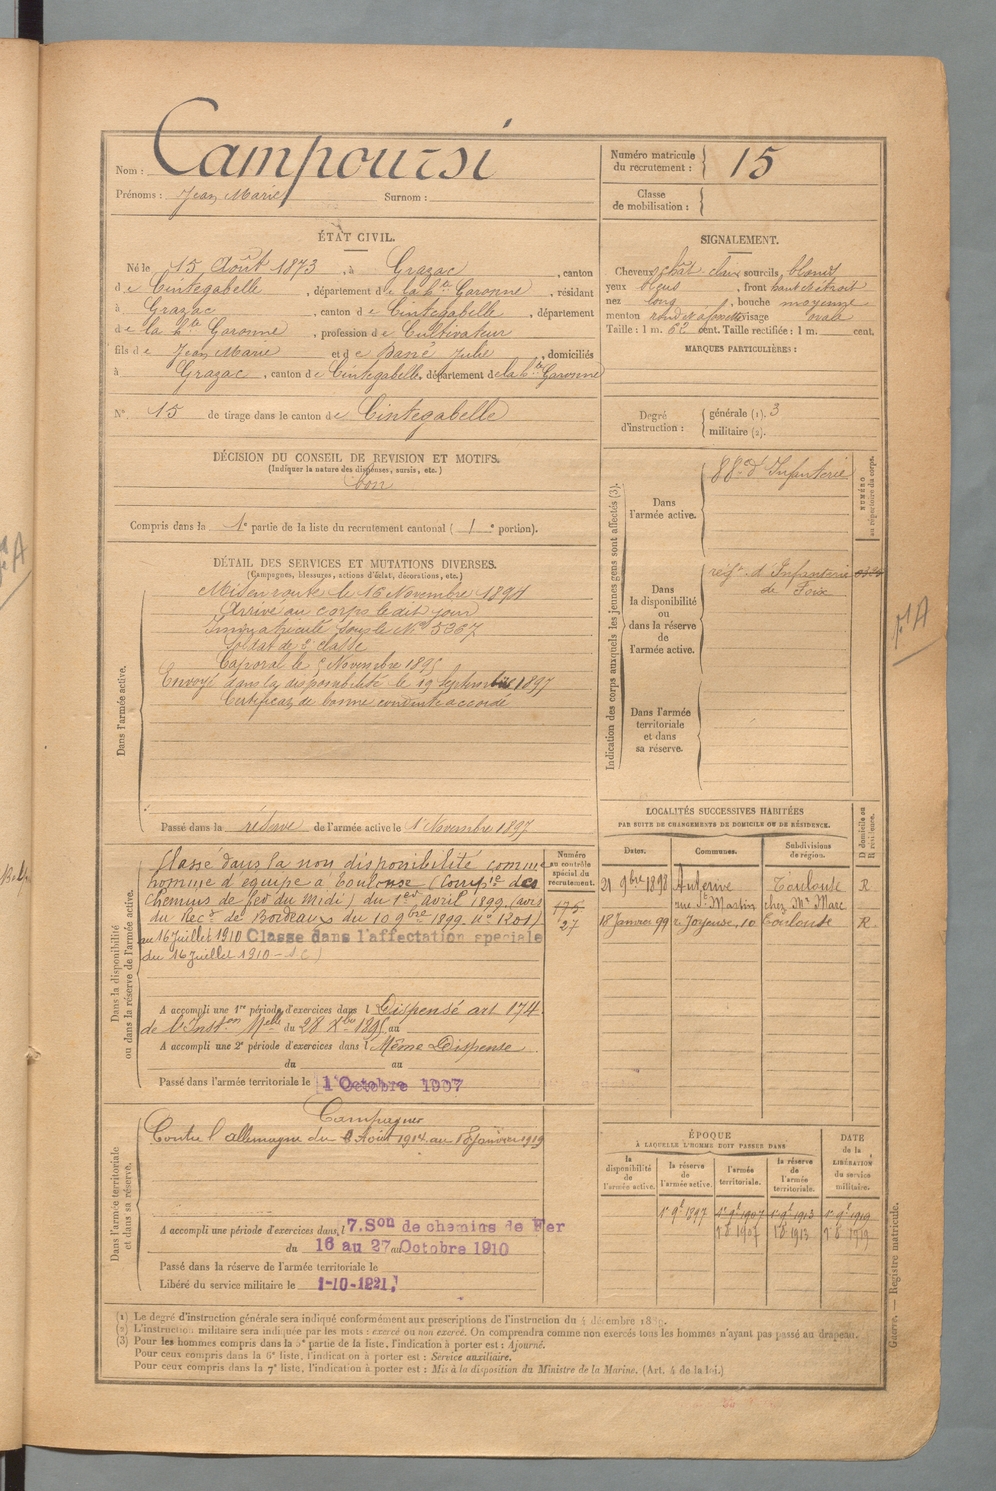 Nom : Campoursi
Prénoms : Jean Marie Surnom :
Numéro matricule du recrutement : 15
Classe de mobilisation :
ÉTAT CIVIL.
Né le 15 Août 1873, à Grazac, canton
de Cintegabelle, département de la hte Garonne, résidant
à Grazac, canton de Cintegabelle, département
de la hte Garonne, profession de Cultivateur
fils de Jean Marie et de Julie, domiciliés
à Grazac, canton de Cintegabelle, département de la hte Garonne
N° 15 de tirage dans le canton de Cintegabelle
SIGNALEMENT.
Cheveux chât clair sourcils, blonds
yeux bleus, front haut et étroit
nez long, bouche moyenne
menton rond et à fossette visage ovale
Taille : 1 m. 62 cent. Taille rectifiée : 1 m. cent.
MARQUES PARTICULIÈRES :
Degré d'instruction :
générale (1). 3
militaire (2).
DÉCISION DU CONSEIL DE REVISION ET MOTIFS.
(Indiquer la nature des dispenses, sursis, etc.)
bon
Compris dans la 1e partie de la liste du recrutement cantonal ( 1e portion).
DÉTAIL DES SERVICES ET MUTATIONS DIVERSES.
(Campagnes, blessures, actions d'éclat, décorations, etc.)
Dans l'armée active.
Mis en route le 16 Novembre 1894
Arrivé au corps le dit jour
Immatriculé sous le No 5367
Soldat de 2e classe
Caporal le 5 Novembre 1895
Envoyé dans la disponibilité le 19 Septembre 1897
Certificat de bonne conduite accordé
Passé dans la réserve de l'armée active le 1 Novembre 1897
Indication des corps auxquels les jeunes gens sont affectés (3).
Dans l'armée active.
88e d'Infanterie
NUMÉRO au répertoire du corps.
Dans la disponibilité ou dans la réserve de l'armée active.
regt d'Infanterie
de Foix
Dans l'armée territoriale et dans sa réserve.
Dans la disponibilité ou dans la réserve de l'armée active.
Numéro au contrôle spécial du recrutement.
175.
27
Classé dans la non disponibilité comme
homme d'équipe à Toulouse (Compie des
Chemins de fer du Midi) du 1er avril 1899. (avis
du Rect de Bordeaux du 10 9bre 1899 no 1201)
au 16 Juillet 1910 Classé dans l'affectation speciale
du 16 Juillet 1910
A accompli une 1re période d'exercices dans l Dispensé art 174
de l'Inston Melle du 28 Xbre 1895 au
A accompli une 2e période d'exercices dans l Même Dispense
du au
Passé dans l'armée territoriale le 1 Octobre 1907
LOCALITÉS SUCCESSIVES HABITÉES
PAR SUITE DE CHANGEMENTS DE DOMICILE OU DE RÉSIDENCE.
D domicile ou R résidence.
Dates. Communes. Subdivisions de région.
21 9bre 1898 Auterive Toulouse R
rue St Martin chez Mr Marc
18 Janvier 99 r. Joyeuse, 10 Toulouse R.
Dans l'armée territoriale et dans sa réserve.
Campagnes
Contre l'allemagne du 2 Août 1914 au 18 janvier 1919
A accompli une période d'exercices dans l 7.Son de chemins de Fer
du 16 au 27 au Octobre 1910
Passé dans la réserve de l'armée territoriale le
Libéré du service militaire le 1-10-1921
ÉPOQUE
À LAQUELLE L'HOMME DOIT PASSER DANS
la disponibilité de l'armée active.
la réserve de l'armée active.
l'armée territoriale.
la réserve de l'armée territoriale.
DATE de la LIBÉRATION du service militaire.
1er 9b 1897 1er 9b 1907 1er 9b 1913 1er 9b 1919
1907 1913 1919
(1) Le degré d'instruction générale sera indiqué conformément aux prescriptions de l'instruction du 4 décembre 1889.
(2) L'instruction militaire sera indiquée par les mots : exercé ou non exercé. On comprendra comme non exercés tous les hommes n'ayant pas passé au drapeau.
(3) Pour les hommes compris dans la 5e partie de la liste, l'indication à porter est : Ajourné.
Pour ceux compris dans la 6e liste, l'indication à porter est : Service auxiliaire.
Pour ceux compris dans la 7e liste, l'indication à porter est : Mis à la disposition du Ministre de la Marine. (Art. 4 de la loi.)
Guerre. — Registre matricule.